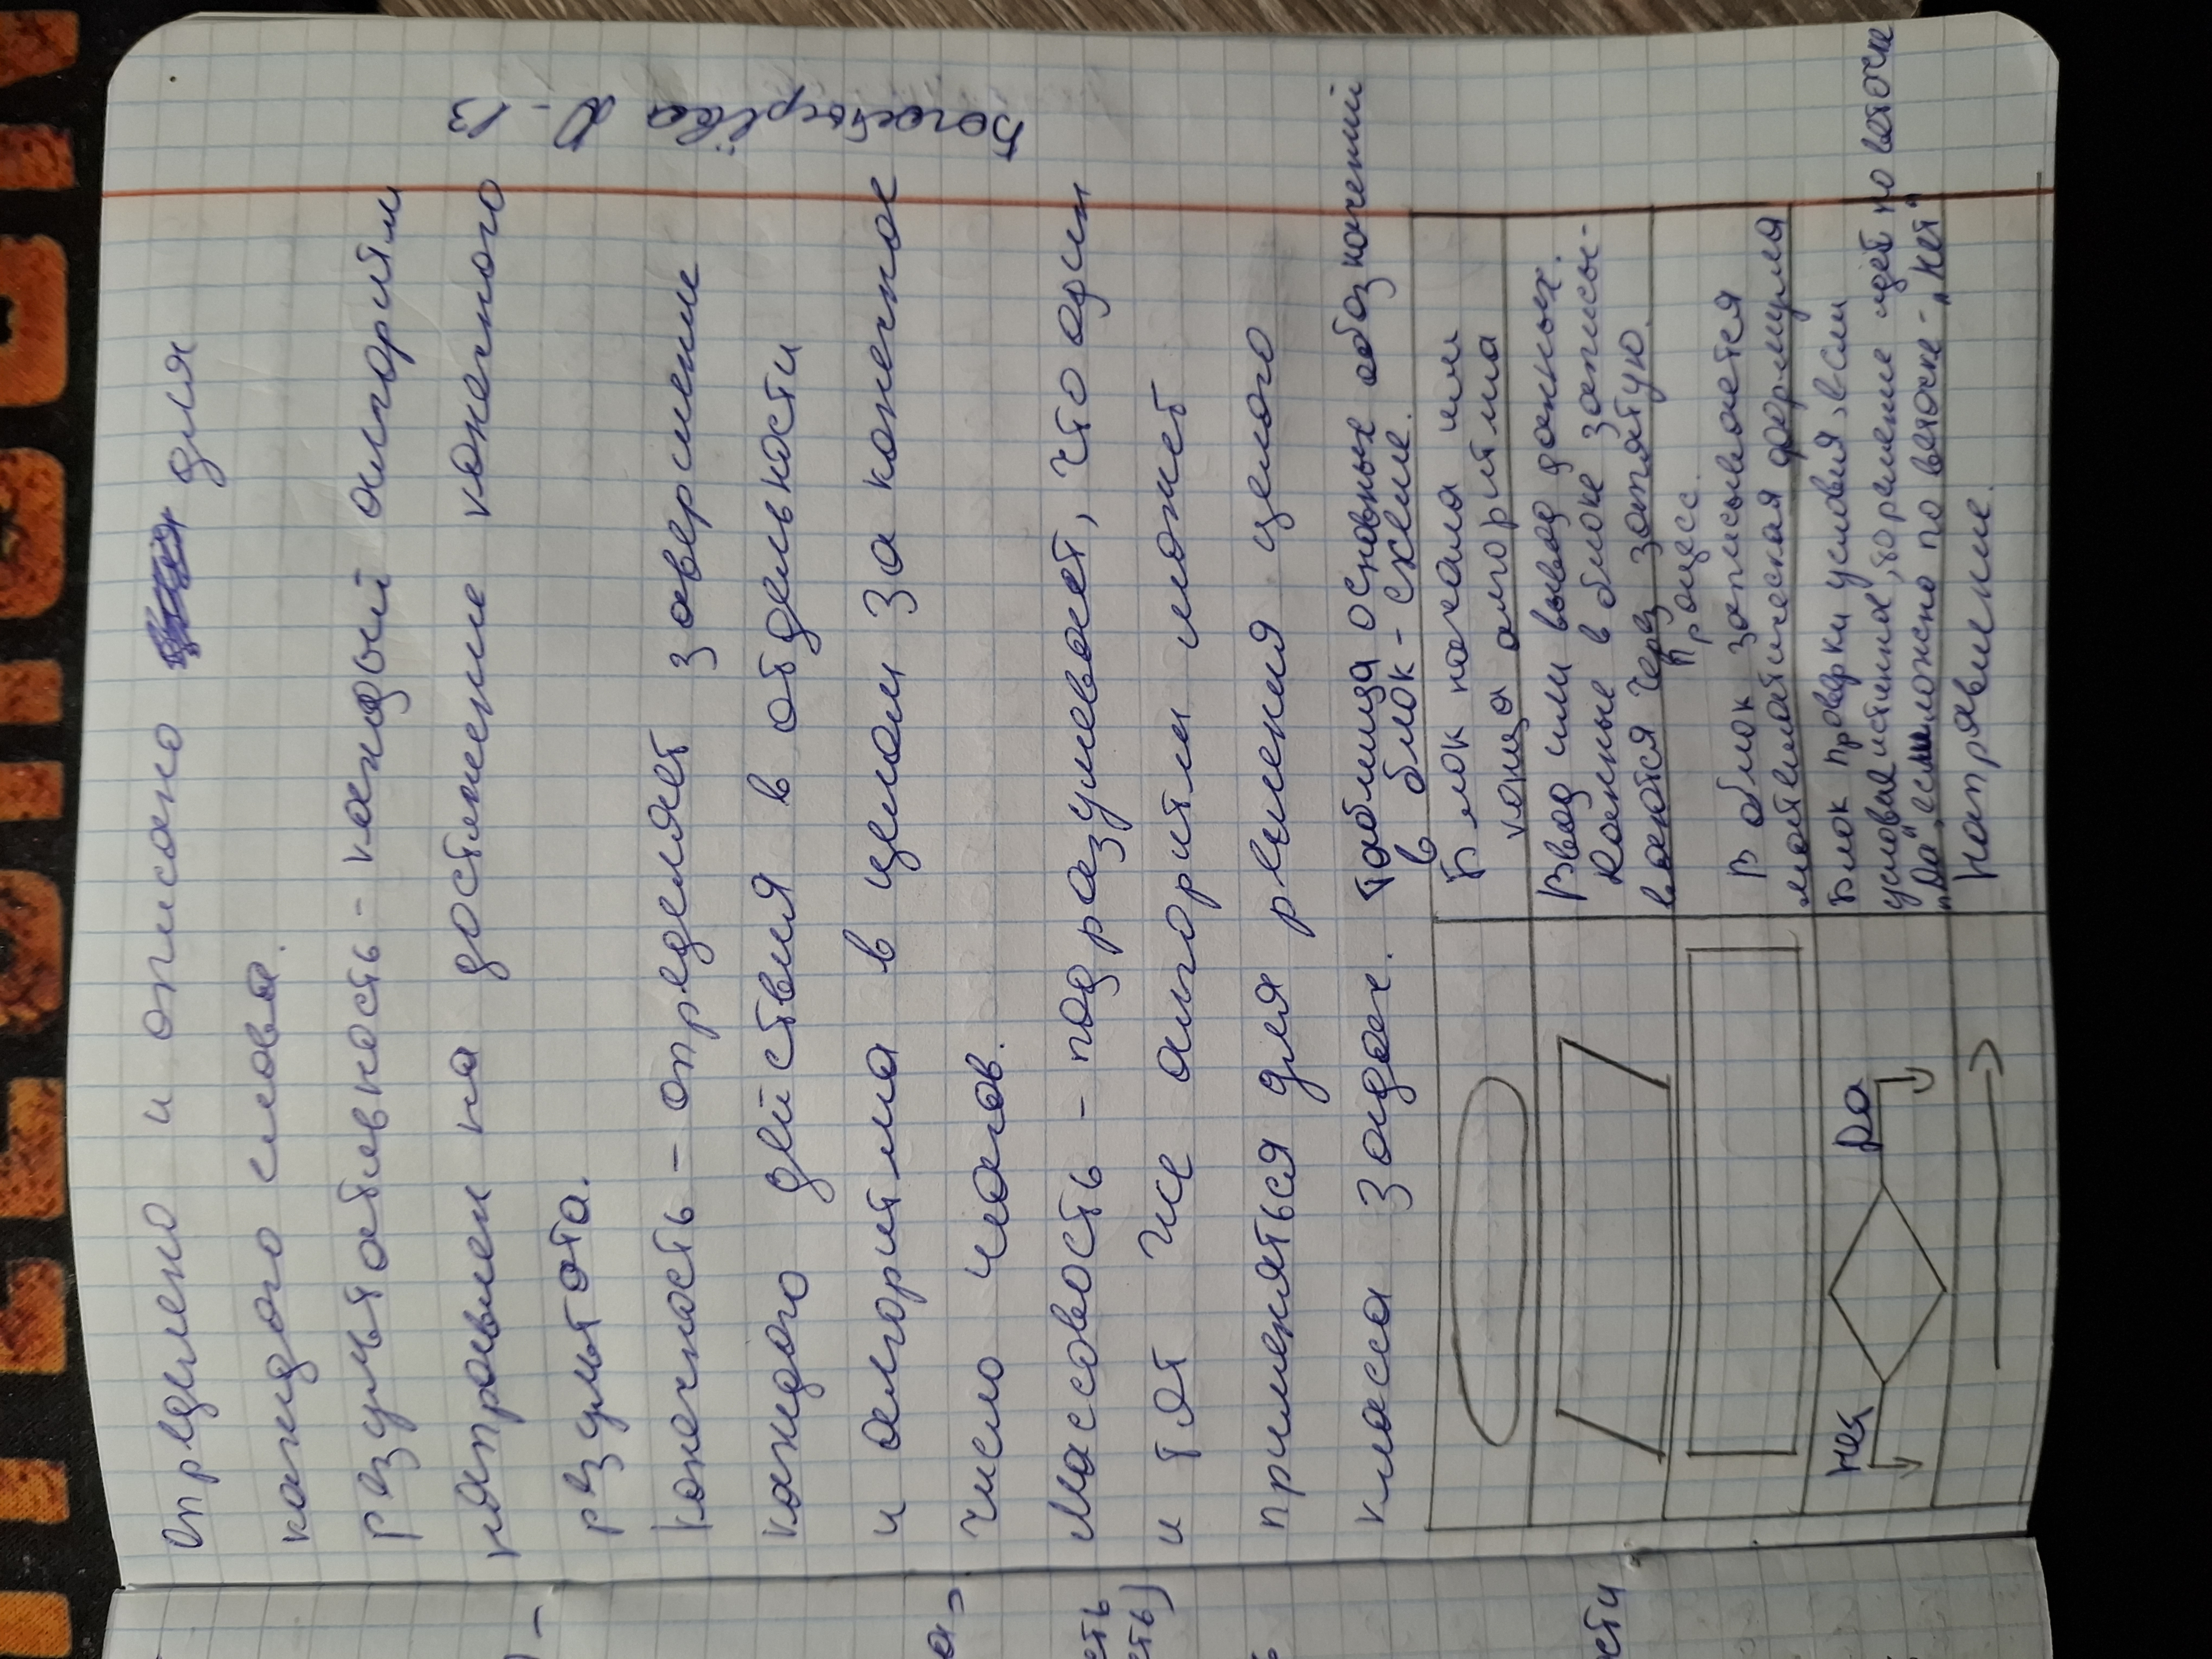 определено и описано для
каждого слова.
Результативность - каждый алгоритм
направлен на достижение конечного
результата.
Конечность - определяет завершение
каждого действия в отдельности
и алгоритма в целом за конечное
число шагов.
Массовость - подразумевает, что один
и тот же алгоритм может
применяться для решения целого
класса задач.
Таблица основных обозначений
в блок-схеме.
Блок начала или
конца алгоритма
Ввод или вывод данных.
Данные в блоке записы-
ваются через запятую.
Процесс.
В блок записывается
математическая формула
нет
Да
Блок проверки условия, если
условие истинное, то решение идёт по веточке
"Да", если ложно по веточке - "нет"
Направление.
В
а
сть
сть)
ости